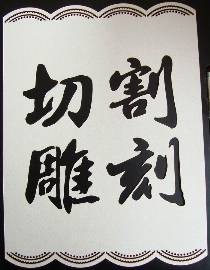 割刻
切雕